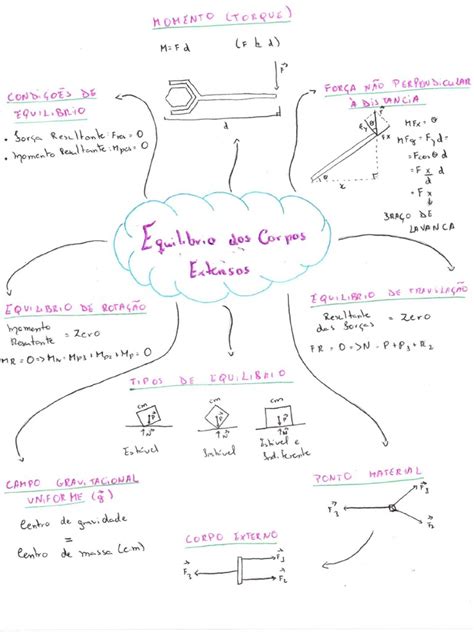 MOMENTO (TORQUE)
M = F d (F ⊥ d)
F
d
CONDIÇÕES DE
EQUILIBRIO
• Força Resultante: Fres = 0
• Momento Resultante: Mres = 0
FORÇA NÃO PERPENDICULAR
À DISTANCIA
θ
Fy
Fx
x
θ
MFx = 0
MFy = Fy d =
= F cos θ d
= F x/d d
= F x
BRAÇO DE
LAVANCA
Equilibrio dos Corpos
Extensos
EQUILIBRIO DE ROTAÇÃO
Momento
Resultante = Zero
EQUILIBRIO DE TRANSLAÇÃO
Resultante
das Forças = Zero
FR = 0 => N = P + P3 + R2
TIPOS DE EQUILIBRIO
cm
P
N
Estável
cm
P
N
Instável
cm
P
N
Estável e
Indiferente
CAMPO GRAVITACIONAL
UNIFORME (g)
Centro de gravidade
=
Centro de massa (cm)
PONTO MATERIAL
F3
F1
F2
CORPO EXTERNO
F3
F1
F2